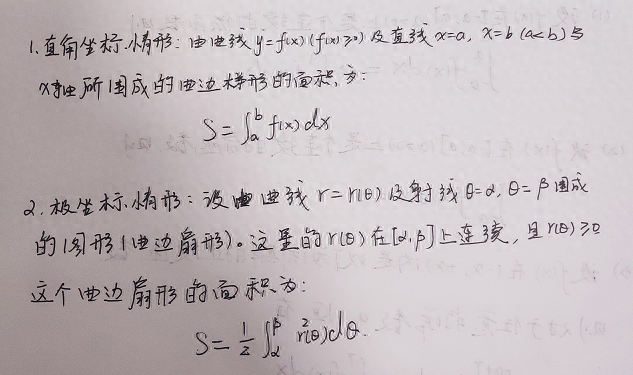 1.直角坐标.情形:由曲线 y=f(x)(f(x)≥0)及直线 x=a, x=b(a<b)与
x轴所围成的曲边梯形的面积,为:
S=∫ₐᵇ f(x)dx
2.极坐标.情形:设由曲线 r=r(θ)及射线θ=α,θ=β围成
的图形(曲边扇形)。这里的r(θ)在[α,β]上连续,且r(θ)≥0
这个曲边扇形的面积为:
S=\frac{1}{2}∫_α^β r²(θ)dθ.